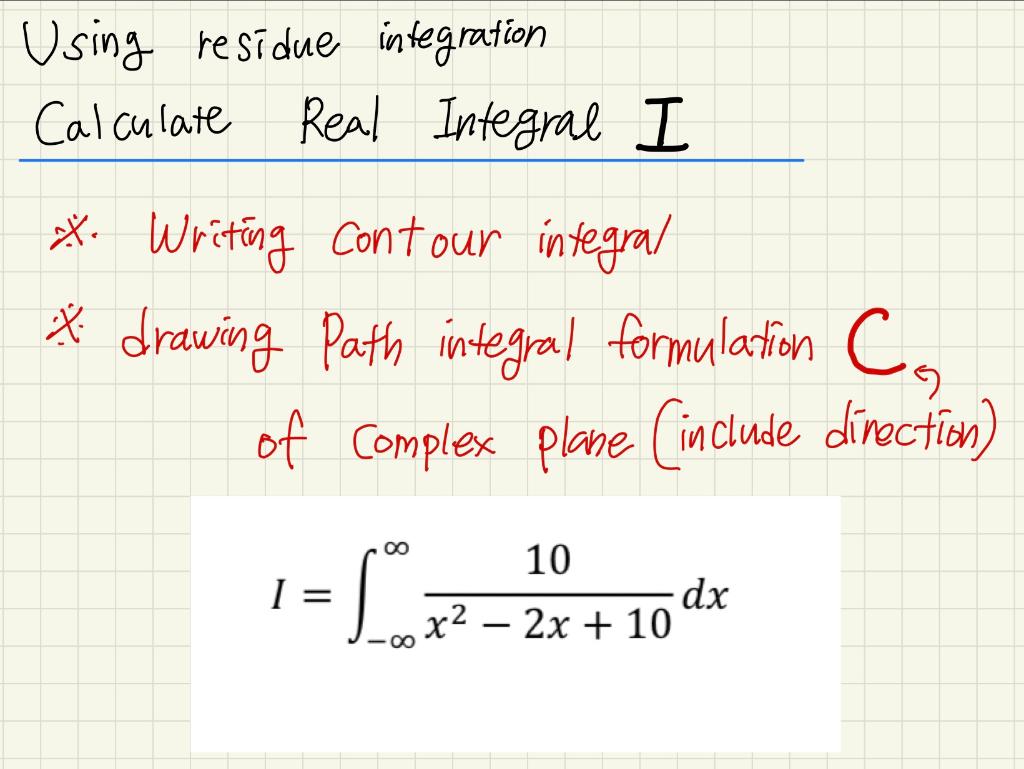 Using residue integration
Calculate Real Integral I
※. Writing contour integral
※. drawing Path integral formulation C
of complex plane (include direction)
I = ∫_{-∞}^{∞} 10 / (x² − 2x + 10) dx